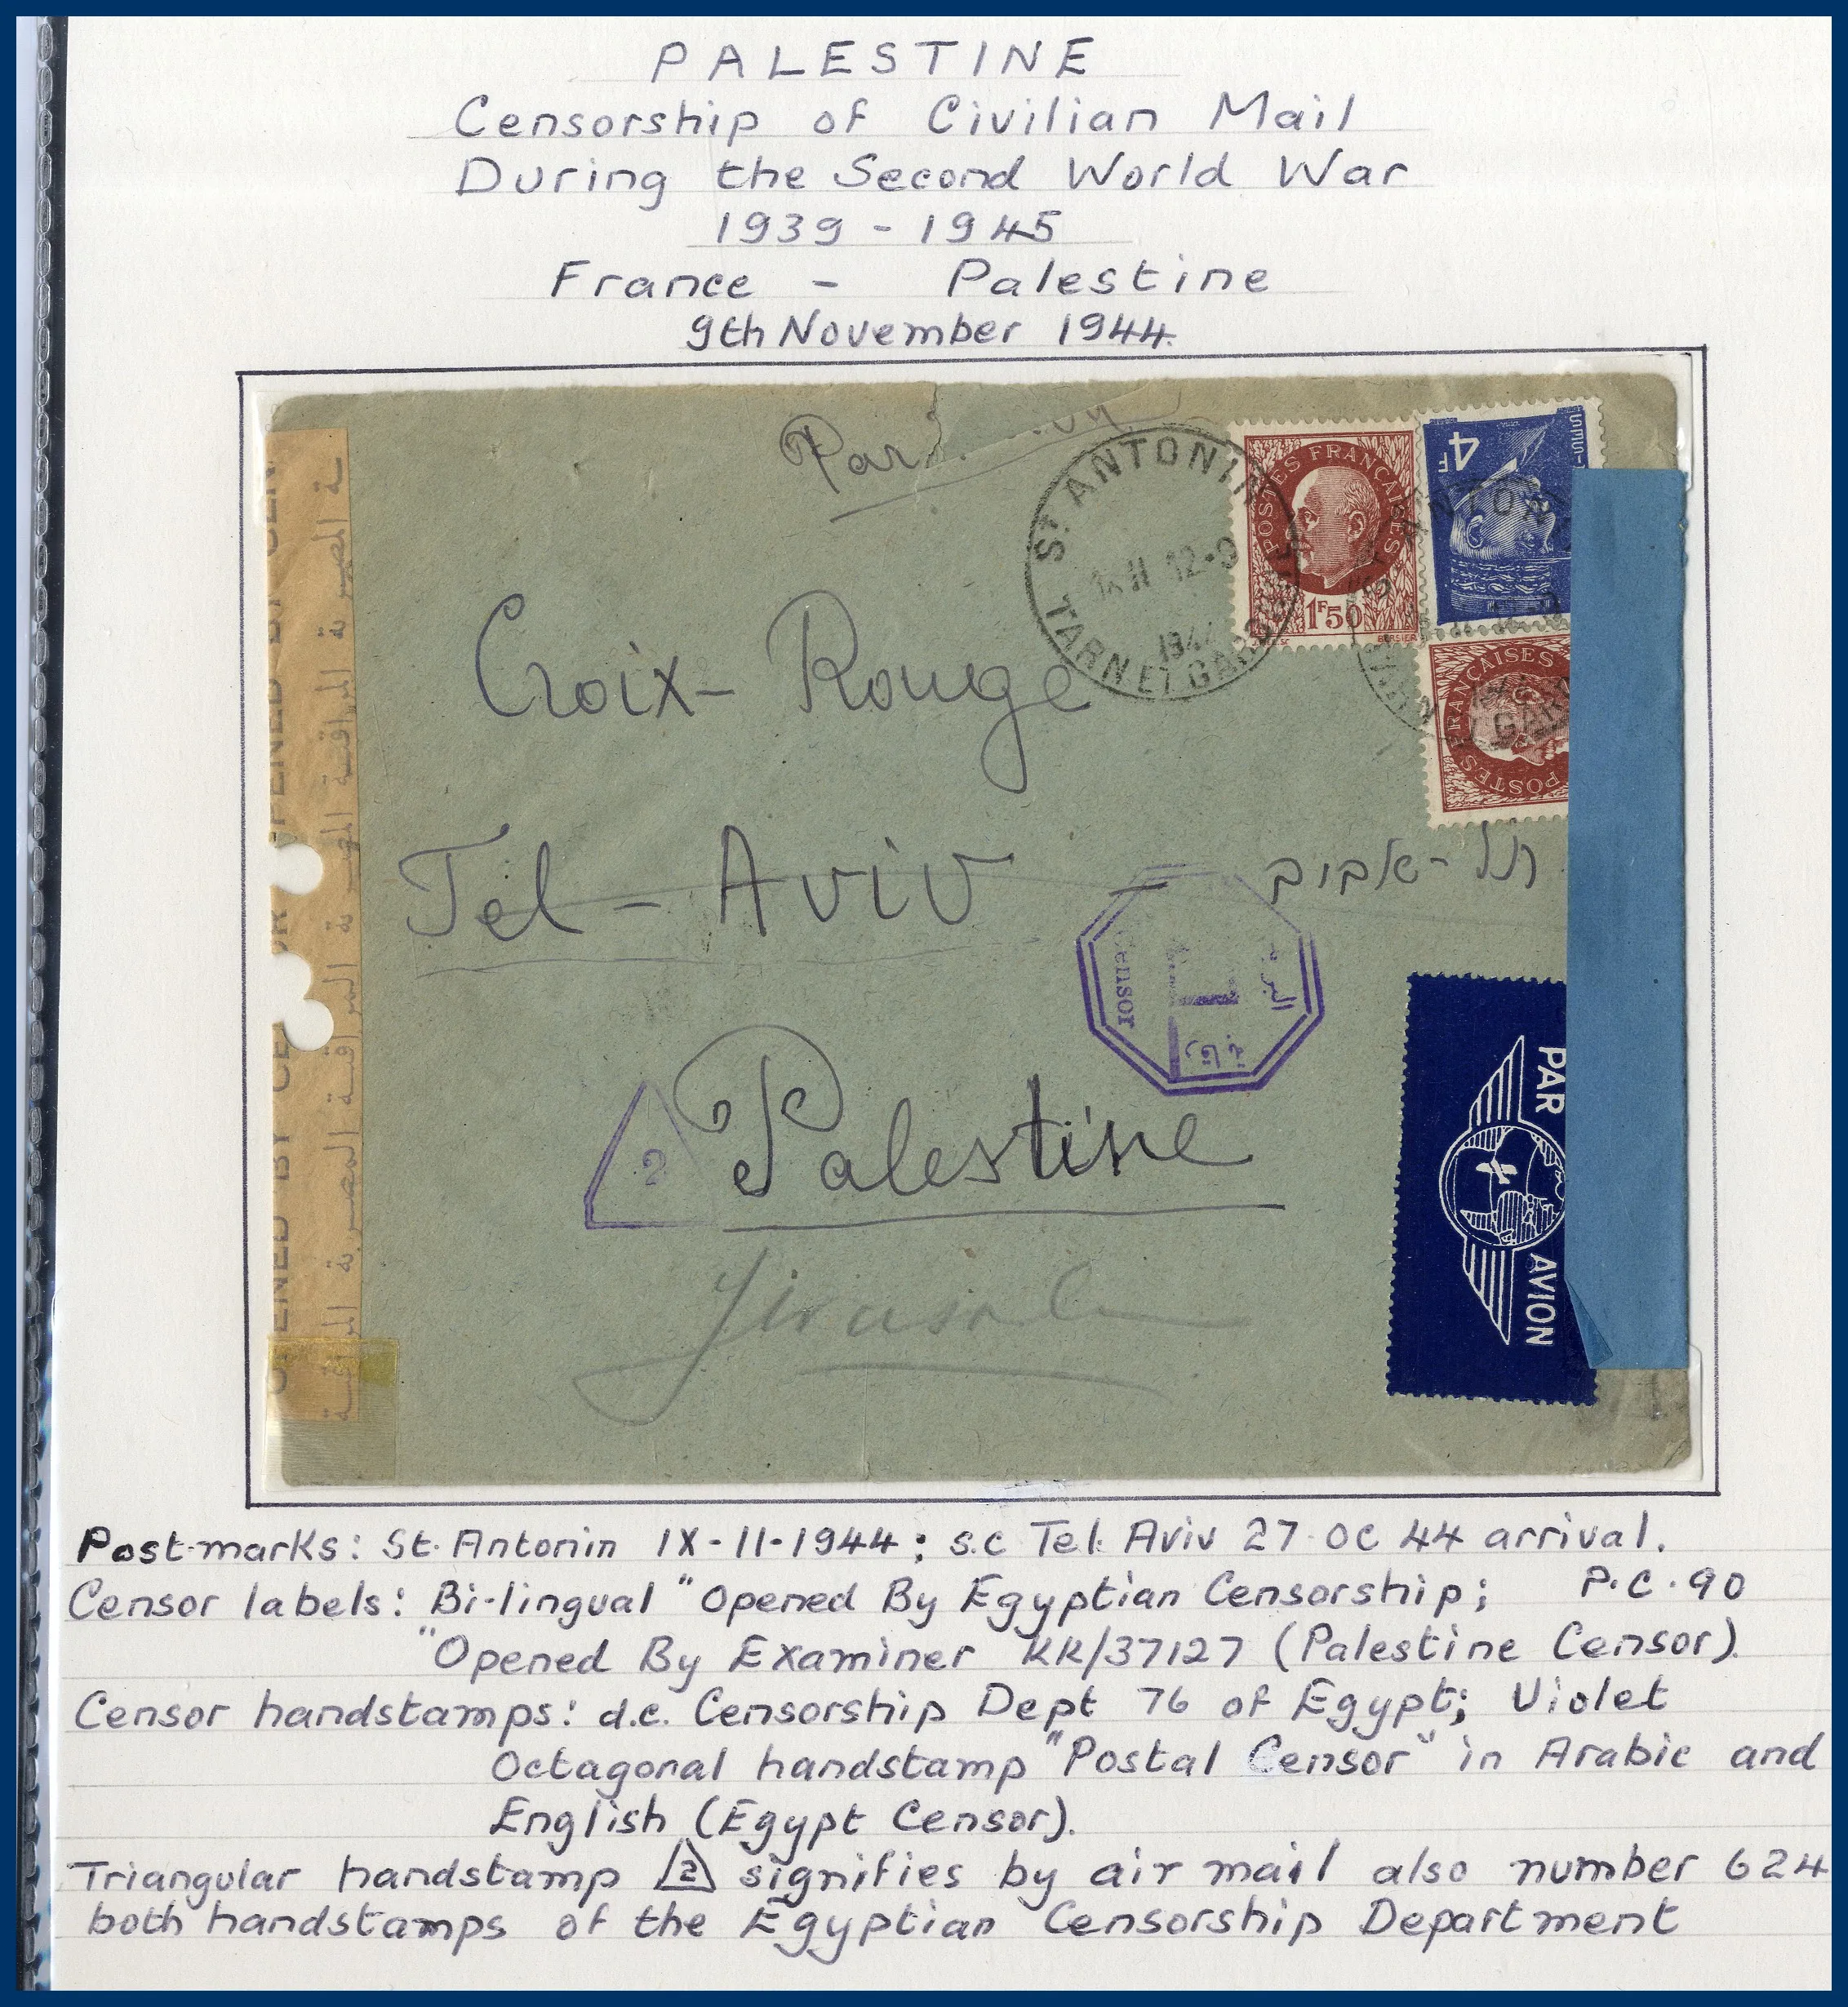 PALESTINE
Censorship of Civilian Mail
During the Second World War
1939 - 1945
France - Palestine
9th November 1944.
Par
ST ANTONIN
12-9
1944
TARN ET GARONNE
POSTES FRANÇAISES
1F50
BERSIER
4F
FRANÇAISES
POSTES
Croix-Rouge
Tel-Aviv
תל-אביב
Censor
البريد
رقابة
2
Palestine
PAR AVION
OPENED BY CENSOR
OPENED BY
المراقبة المصرية المراقبة المصرية
Postmarks: St. Antonin IX-11-1944; s.c Tel Aviv 27 OC 44 arrival.
Censor labels: Bi-lingual "Opened By Egyptian Censorship; P.C.90
"Opened By Examiner KK/37127 (Palestine Censor).
Censor handstamps: d.c. Censorship Dept 76 of Egypt; Violet
Octagonal handstamp "Postal Censor" in Arabic and
English (Egypt Censor).
Triangular handstamp 2 signifies by air mail also number 624
both handstamps of the Egyptian Censorship Department